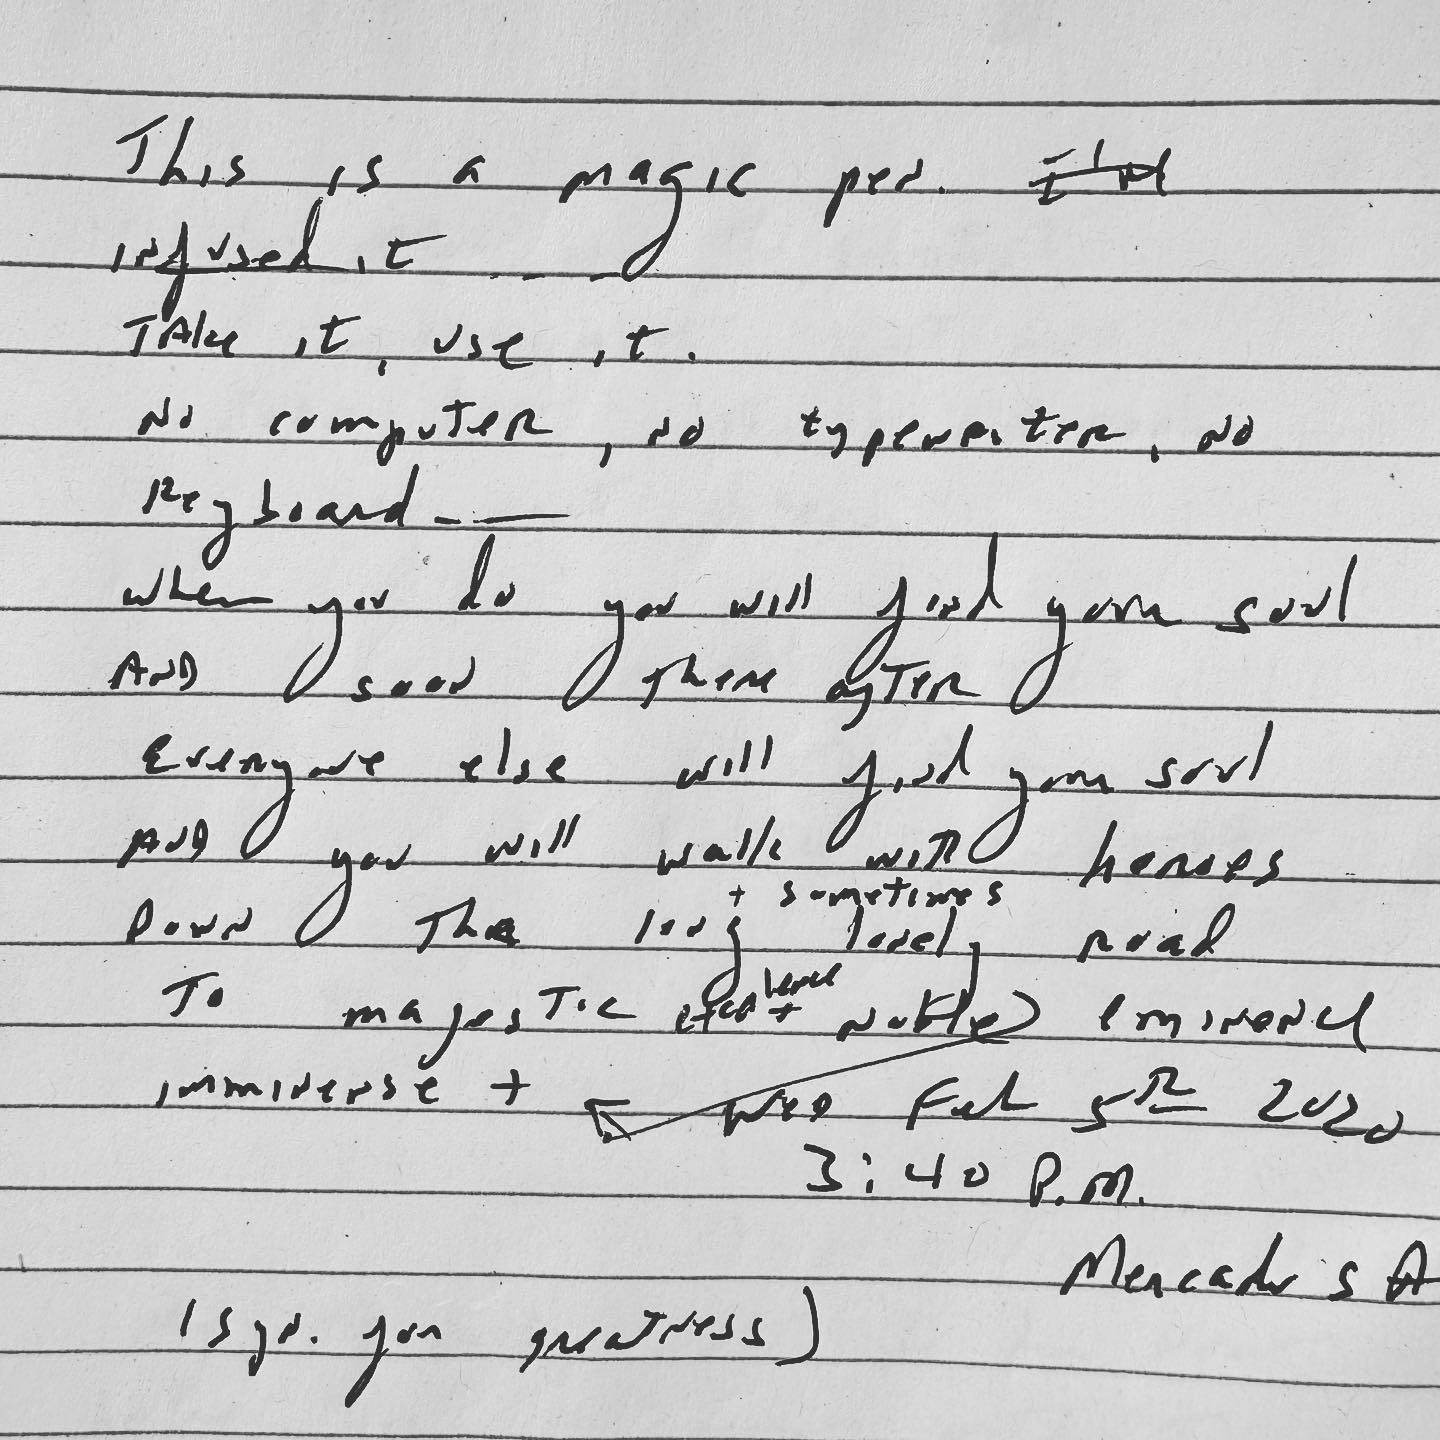 This is a magic pen.
infused it ---
Take it, use it.
No computer, no typewriter, no
Keyboard -- —
when you do you will find your soul
AND soon there after
Everyone else will find your soul
AND you will walk with heroes
+ sometimes
Down The long lonely road
To majestic + noble eminence
imminense +
Wed Feb 5th 2020
3:40 P.M.
Mercado s A
(syn. for greatness)